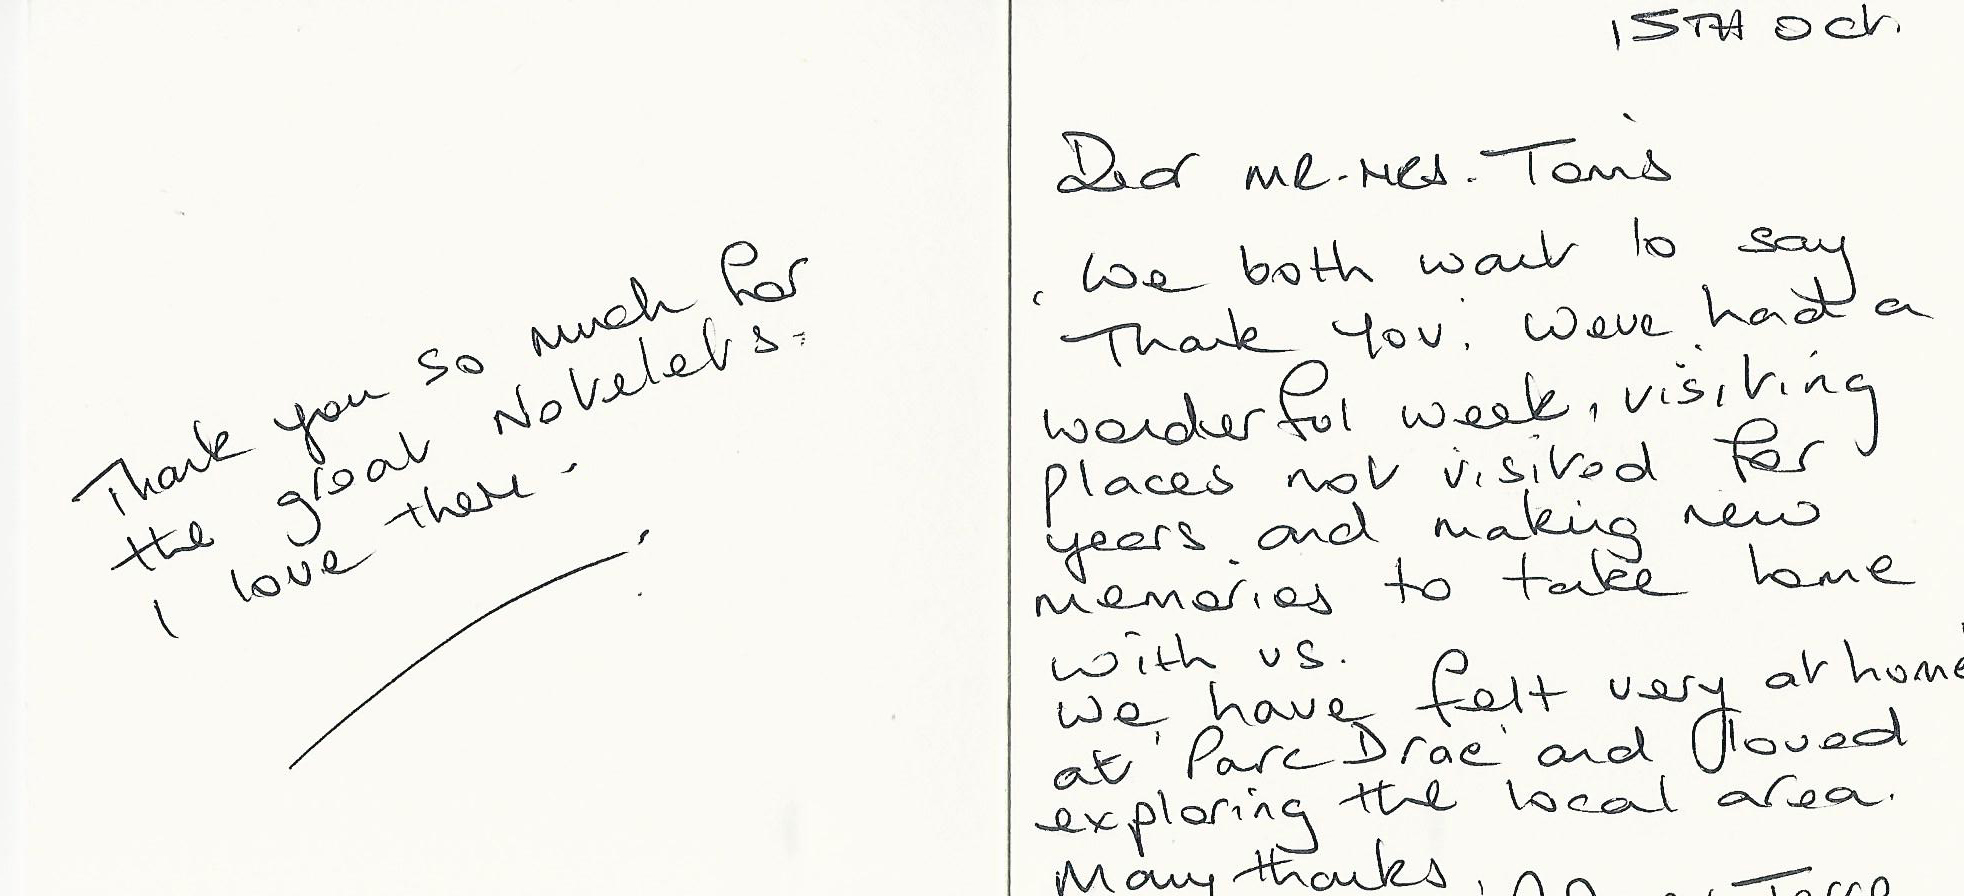 Thank you so much for
the great Notelets.
I love them.
15TH Oct.
Dear MR. MRS. Toms
We both want to say
'Thank You'. Weve had a
wonderful week, visiting
places not visited for
years and making new
memories to take home
with us.
We have felt very at home
at 'Parc Drac' and loved
exploring the local area.
Many thanks,